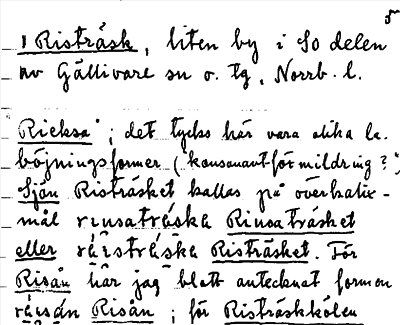 5
1 Risträsk, liten by i SO delen
av Gällivare sn o. tg, Norrb. l.
"Rieksa"; det tycks här vara olika la.
böjningsformer ("konsonantförmildring?").
Sjön Risträsket kallas på överkalix-
mål rınsaträska Rinsaträsket
eller räıstråska Risträsket. För
Risån har jag blott antecknat formen
räısån Risån; för Risträskkölen